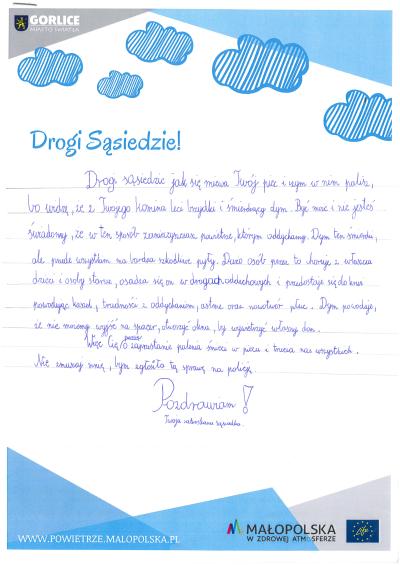 GORLICE
MIASTO ŚWIATŁA
Drogi Sąsiedzie!
Drogi sąsiedzie jak się miewa Twój piec i czym w nim palisz,
bo widzę, że z Twojego komina leci brzydki i śmierdzący dym. Być może i nie jesteś
świadomy, że w ten sposób zanieczyszczasz powietrze, którym oddychamy. Dym ten śmierdzi,
ale przede wszystkim ma bardzo szkodliwe pyły. Dużo osób przez to choruje, a zwłaszcza
dzieci i osoby starsze, osadza się on w drogach oddechowych i przedostaje się do krwi
powodując kaszel, trudności z oddychaniem, astmę oraz nowotwór płuc. Dym powoduje,
że nie możemy wyjść na spacer, otworzyć okna, by wywietrzyć własny dom.
Więc Cię proszę o zaprzestanie palenia śmieci w piecu i trucia nas wszystkich.
Nie zmuszaj mnie, bym zgłosiła tą sprawę na policję.
Pozdrawiam!
Twoja sąsiadka.
WWW.POWIETRZE.MALOPOLSKA.PL
MAŁOPOLSKA
W ZDROWEJ ATMOSFERZE
life